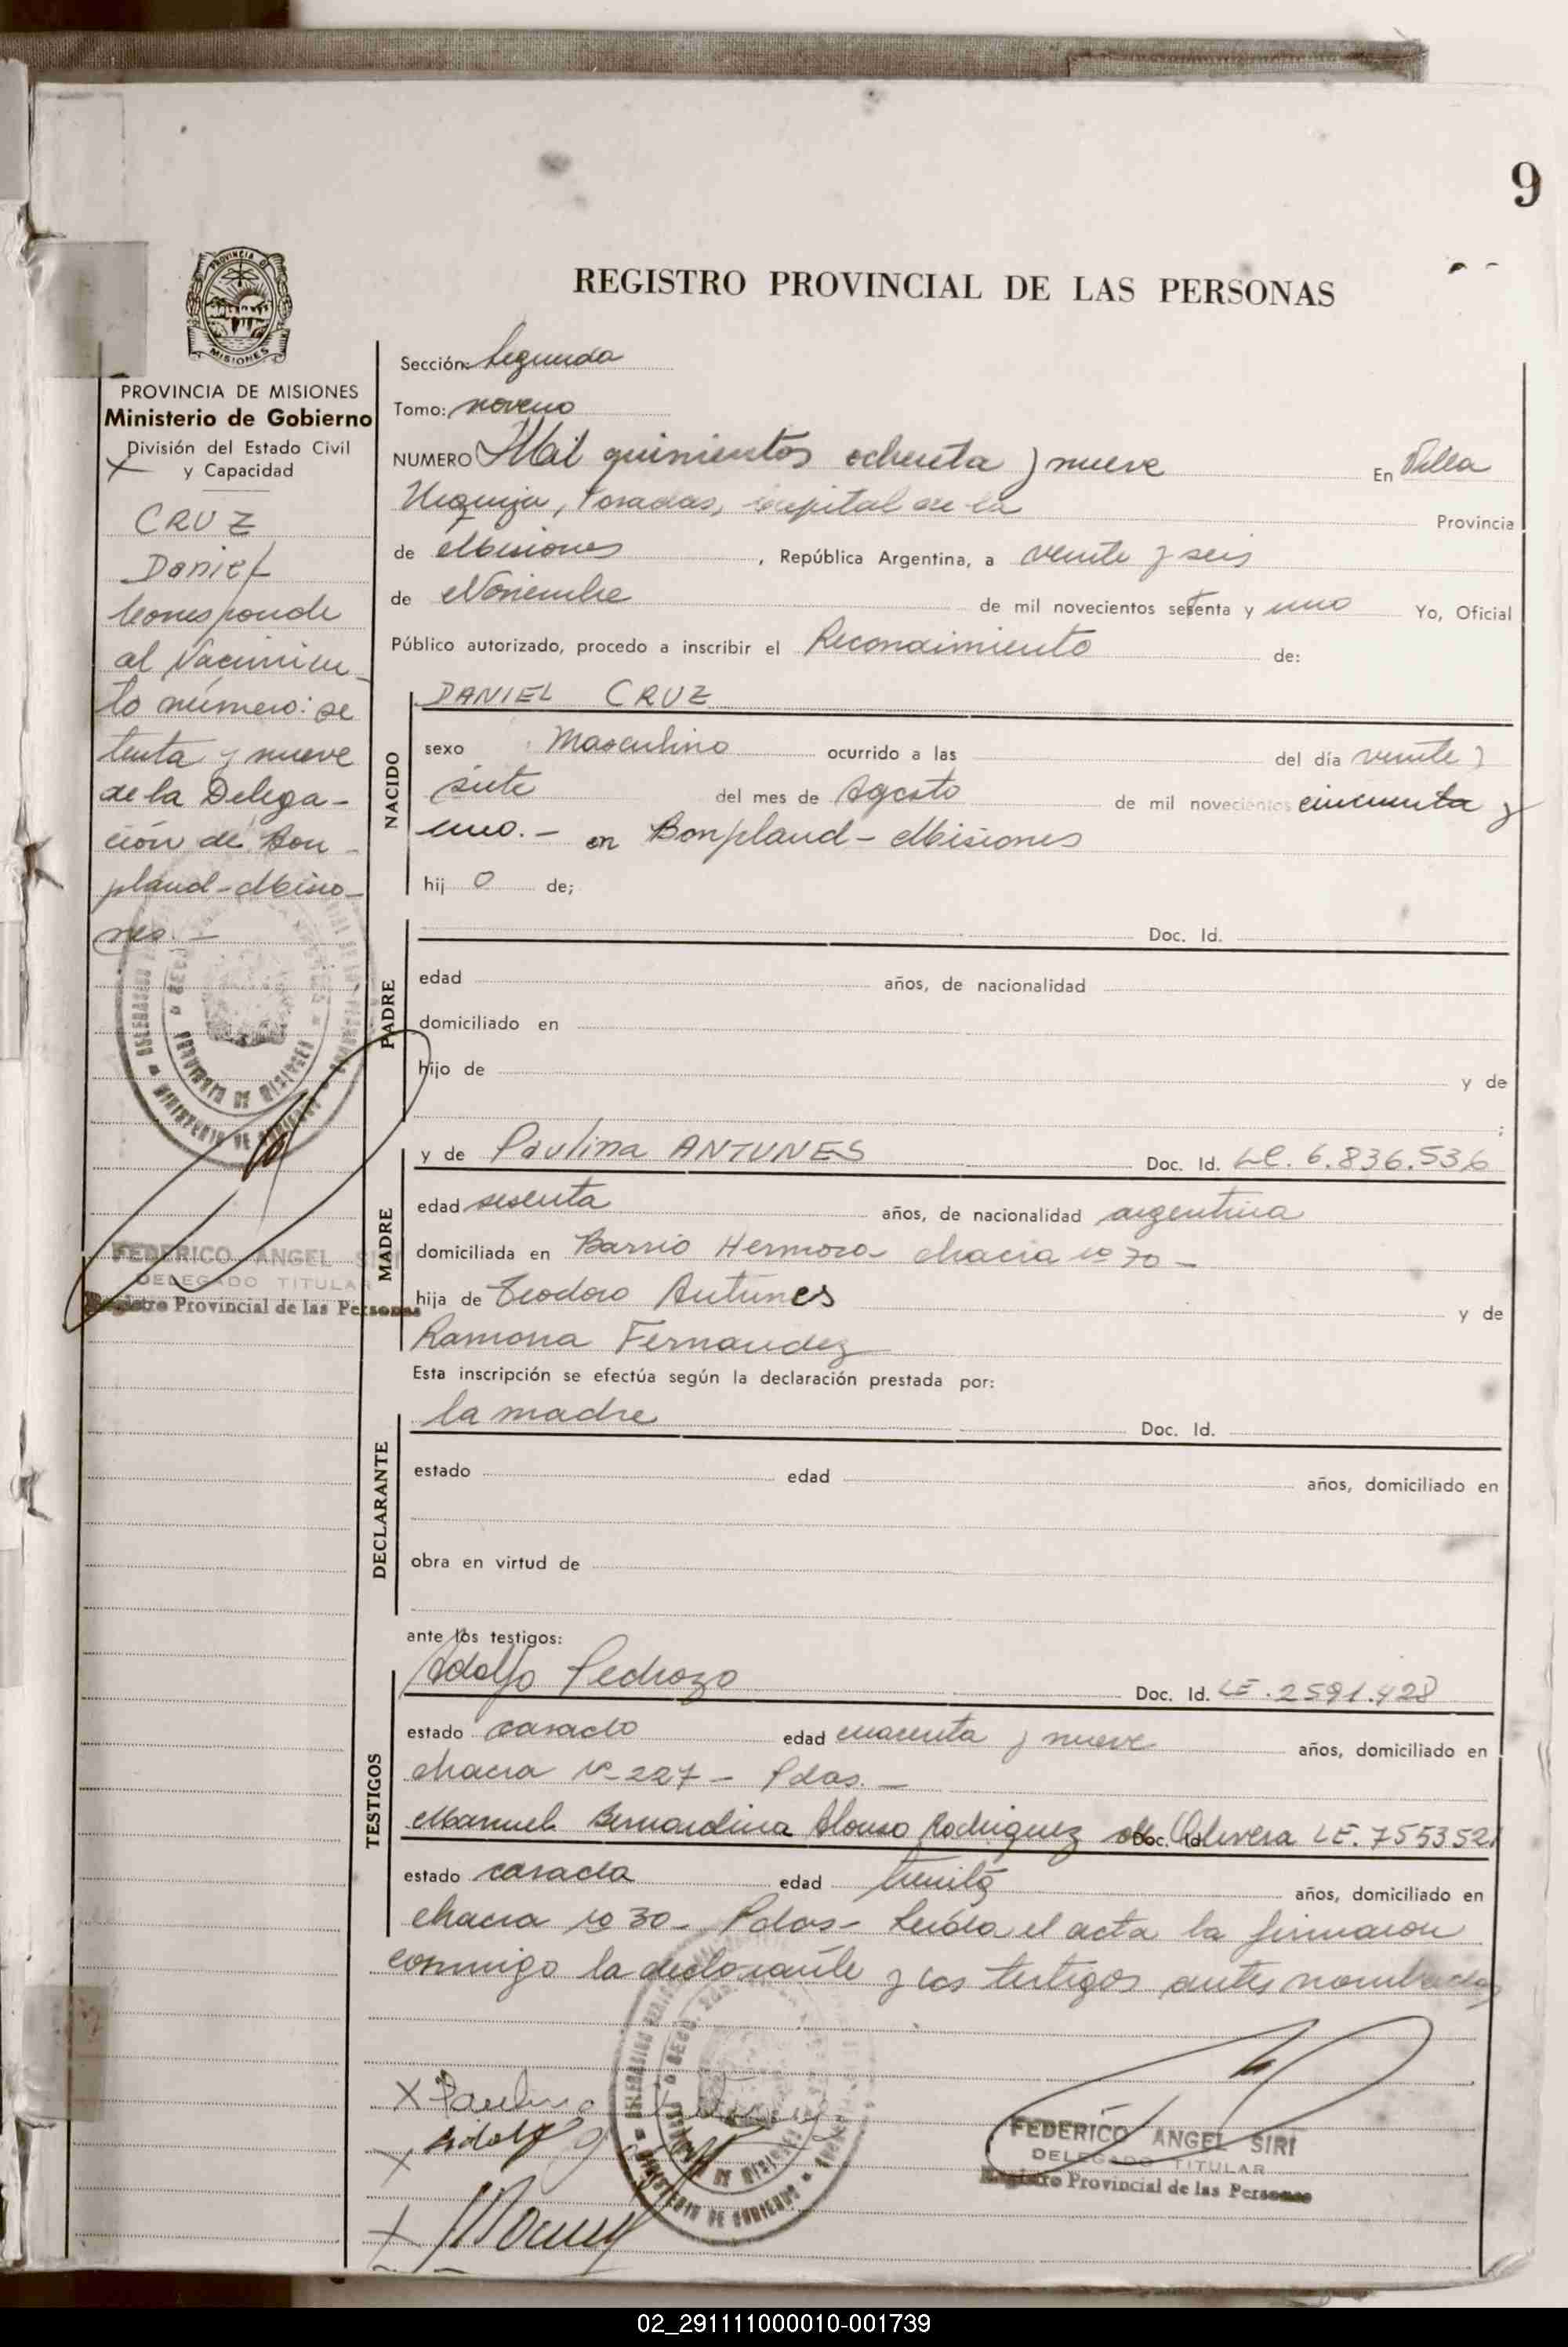 9
REGISTRO PROVINCIAL DE LAS PERSONAS
PROVINCIA DE MISIONES
Ministerio de Gobierno
División del Estado Civil
y Capacidad
CRUZ
Daniel
Corresponde
al Nacimien-
to número: se
tenta y nueve
de la Delega-
ción de Bon-
pland-Misio-
nes.-
FEDERICO ANGEL SIRI
DELEGADO TITULAR
Registro Provincial de las Personas
Sección: Segunda
Tomo: noveno
NUMERO Mil quinientos ochenta y nueve En Villa
Urquiza, Posadas, capital de la Provincia
de Misiones, República Argentina, a veinte y seis
de Noviembre de mil novecientos setenta y uno Yo, Oficial
Público autorizado, procedo a inscribir el Reconocimiento de:
NACIDO
DANIEL CRUZ
sexo Masculino ocurrido a las del día veinte y
siete del mes de Agosto de mil novecientos cincuenta y
uno.- en Bonpland-Misiones
hij o de;
PADRE
Doc. Id.
edad años, de nacionalidad
domiciliado en
hijo de y de
;
MADRE
y de Paulina ANTUNES Doc. Id. LC. 6.836.536
edad sesenta años, de nacionalidad argentina
domiciliada en Barrio Hermoso- chacra nº 70-
hija de Teodoro Antunes y de
Ramona Fernandez
Esta inscripción se efectúa según la declaración prestada por:
DECLARANTE
la madre Doc. Id.
estado edad años, domiciliado en
obra en virtud de
ante los testigos:
TESTIGOS
Adolfo Pedrozo Doc. Id. LE. 2591.428
estado casado edad cuarenta y nueve años, domiciliado en
chacra nº 227- Pdas.-
Manuel Bernardina Alonso Rodriguez de Olivera LE. 7553521
estado casada edad treinta años, domiciliado en
chacra nº 30- Pdas- Leída el acta la firmaron
conmigo la declarante y los testigos antes nombrados
X Paulina
X Adolfo
X
FEDERICO ANGEL SIRI
DELEGADO TITULAR
Registro Provincial de las Personas
02_291111000010-001739